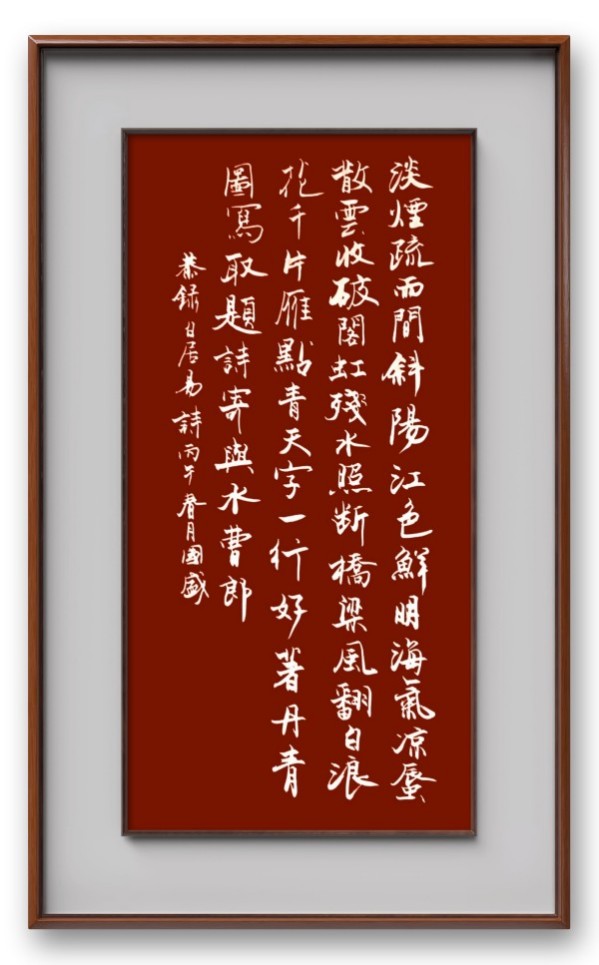 淡煙疏雨間斜陽江色鮮明海氣凉蜃
散雲收破閣虹殘水照断橋梁風翻白浪
花千片雁點青天字一行好著丹青
圖寫取題詩寄與水曹郎
恭録白居易詩丙午春月國盛